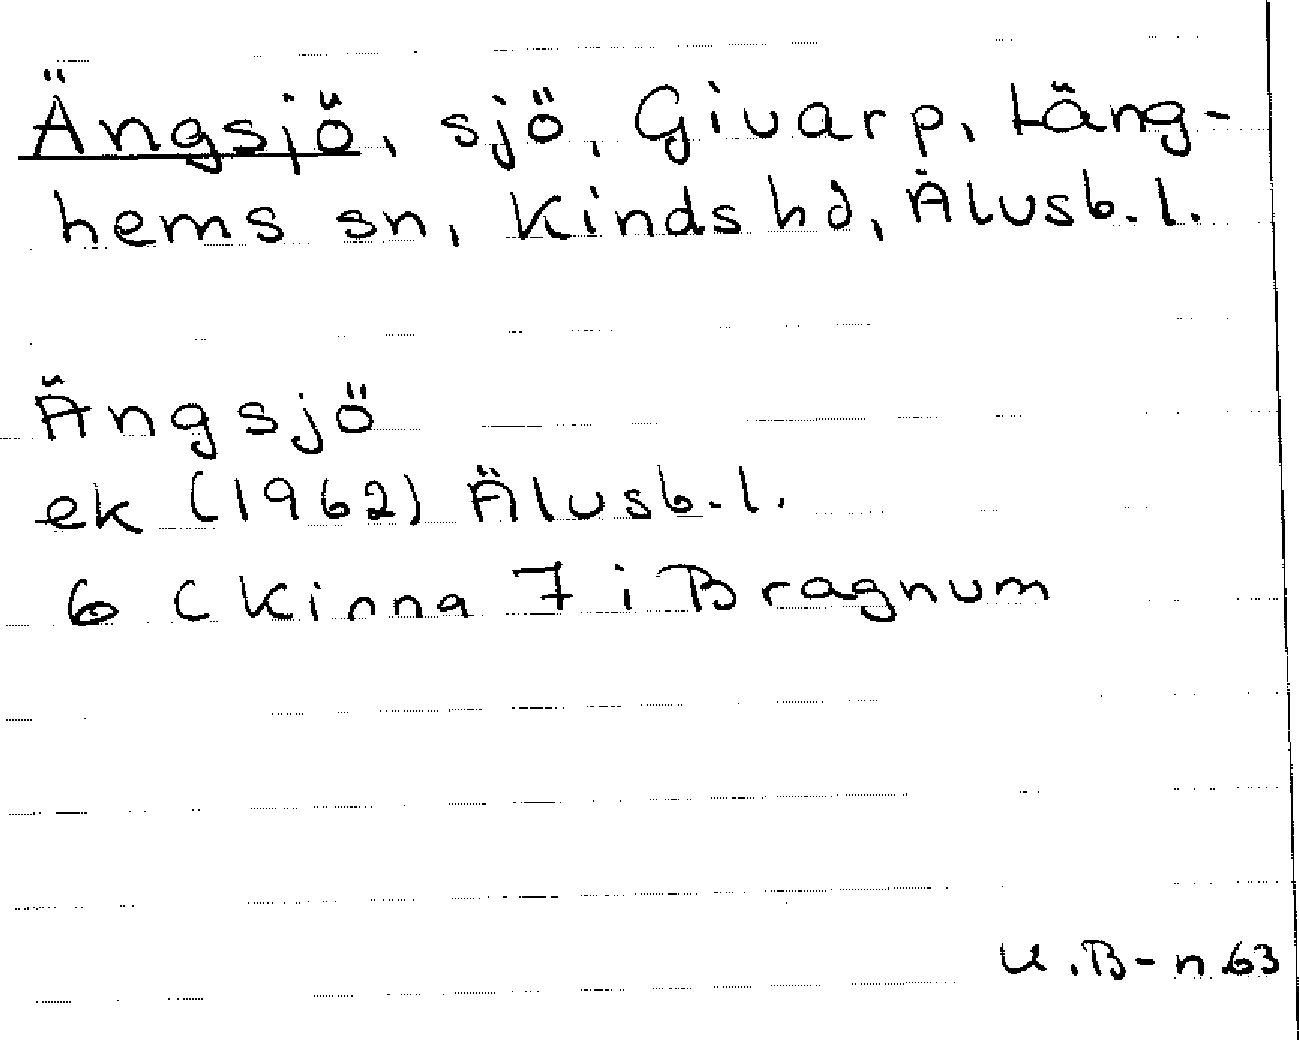 Ängsjö, sjö, Givarp, Läng-
hems sn, Kinds hd, Älvsb.l.
Ängsjö
ek (1962) Älvsb.l.
6 C Kinna 7 i Bragnum
U.B-n 63